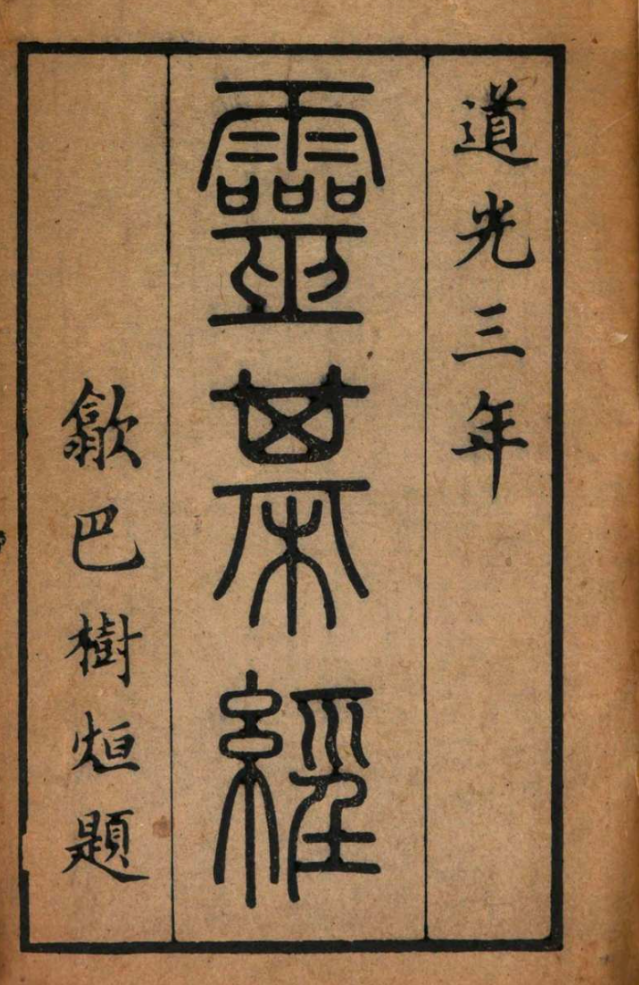 道光三年
靈棊經
歙巴樹烜題